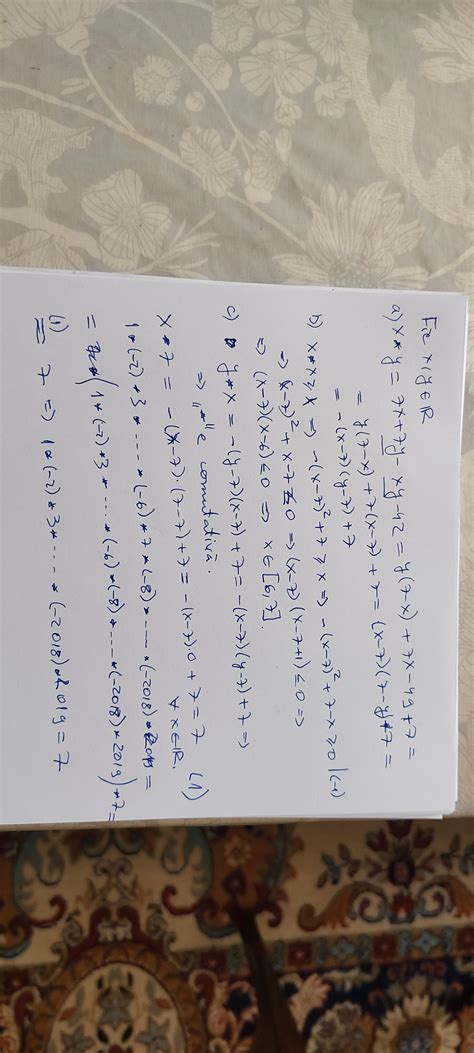 Fie x,y ∈ ℝ
a) x*y = 7x+7y-xy-42 = y(7-x)+7x-49+7 =
= y(7-x)+7(x-7)+7 = (x-7)(7-y)+7 =
= -(x-7)(y-7)+7
b) x*x ≥ x ⇒ -(x-7)²+7 ≥ x ⇒ -(x-7)²+7-x ≥ 0 |(-1)
⇒ (x-7)²+x-7 ≤ 0 ⇒ (x-7)(x-7+1) ≤ 0 ⇒
⇒ (x-7)(x-6) ≤ 0 ⇒ x ∈ [6,7].
c) y*x = -(y-7)(x-7)+7 = -(x-7)(y-7)+7 ⇒
⇒ "*" e comutativă.
x*7 = -(x-7)·(7-7)+7 = -(x-7)·0+7 = 7 (1)
∀ x∈ℝ.
1*(-2)*3*.....*(-6)*7*(-8)*....*(-2018)*2019 =
= (1*(-2)*3*....*(-6)*(-8)*....*(-2018)*2019)*7 =
(1)
= 7 ⇒ 1*(-2)*3*....*(-2018)*2019 = 7